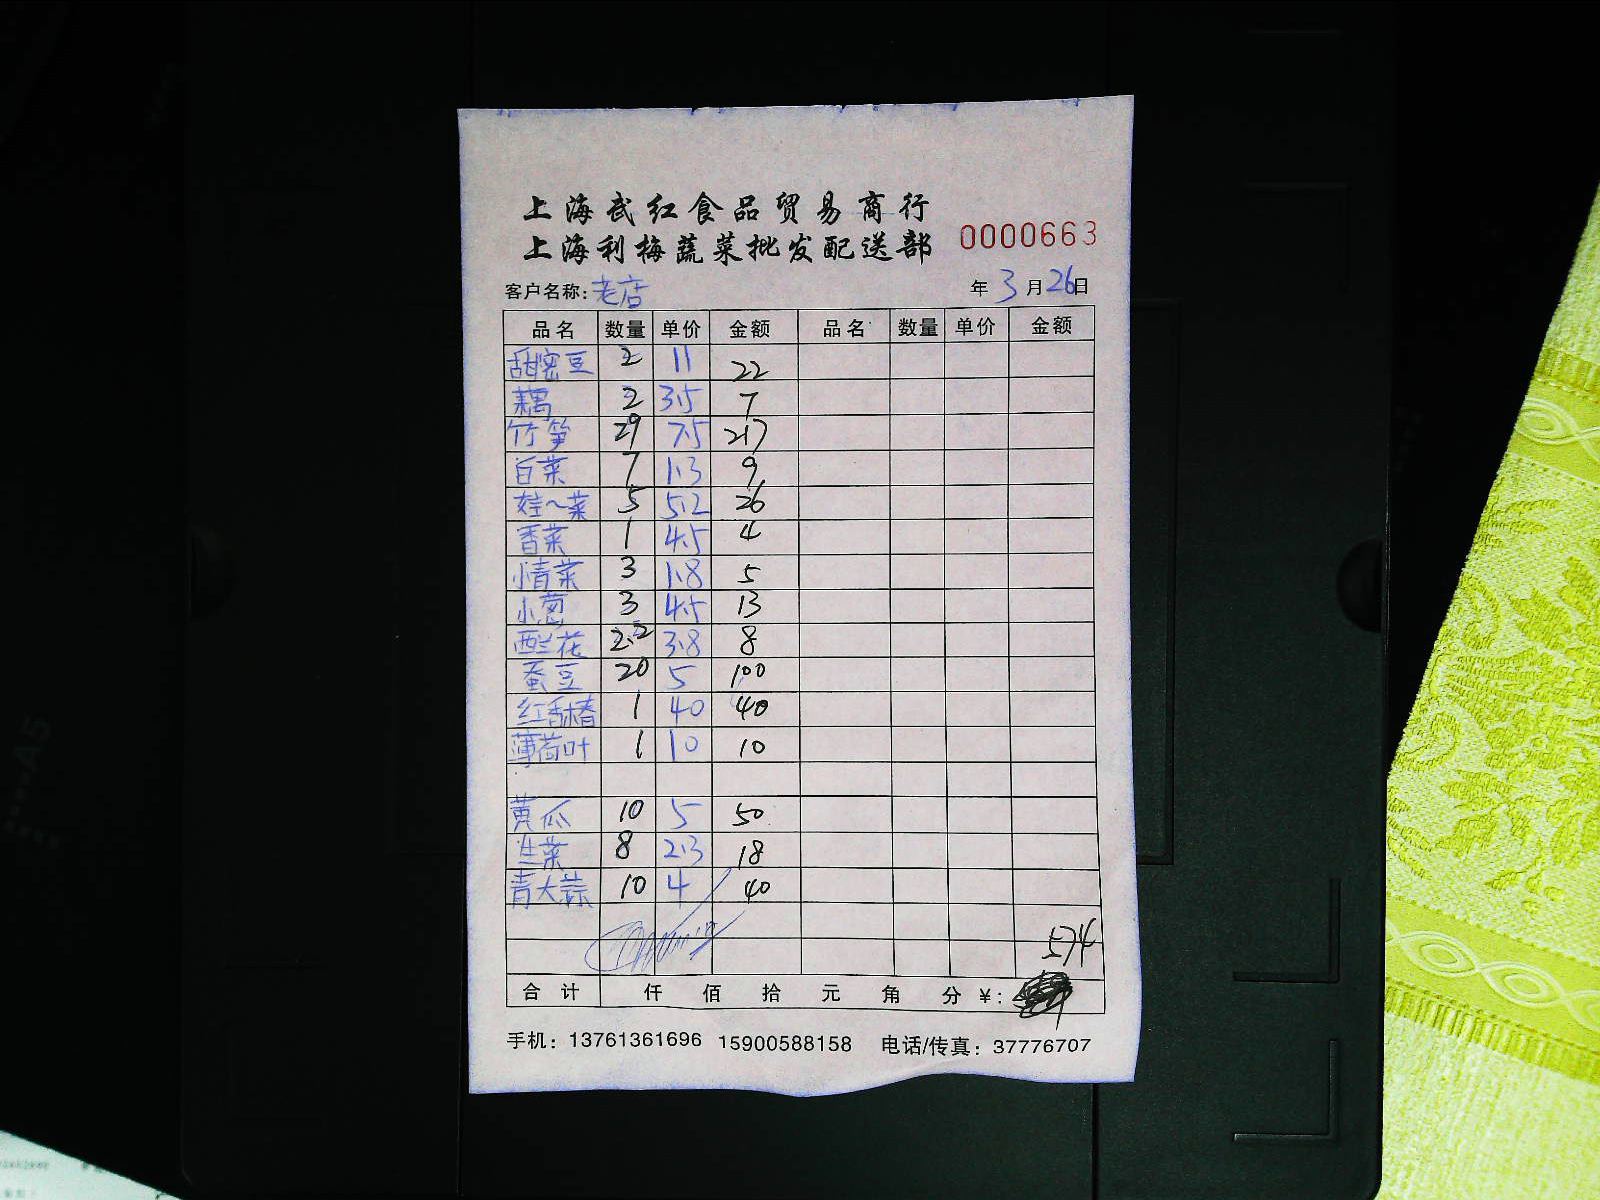 上海武红食品贸易商行
上海利梅蔬菜批发配送部
0000663
客户名称:老店 年3月26日
品名 数量 单价 金额 品名 数量 单价 金额
甜密豆 2 11 22
藕 2 3.5 7
竹笋 29 7.5 217
白菜 7 1.3 9
娃~菜 5 5.2 26
香菜 1 4.5 4
小青菜 3 1.8 5
小葱 3 4.5 13
西兰花 2.2 3.8 8
蚕豆 20 5 100
红香椿 1 40 40
薄荷叶 1 10 10
黄瓜 10 5 50
生菜 8 2.3 18
青大蒜 10 4 40
574
合计 仟 佰 拾 元 角 分 ¥:
手机: 13761361696 15900588158 电话/传真: 37776707
A5